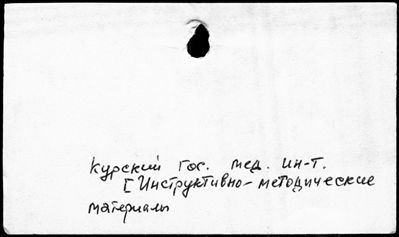 Курский гос. мед. ин-т.
[Инструктивно-методические
материалы